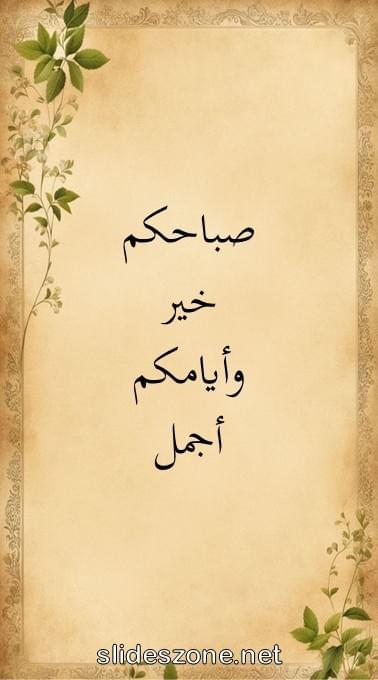 صباحكم
خير
وأيامكم
أجمل
slideszone.net